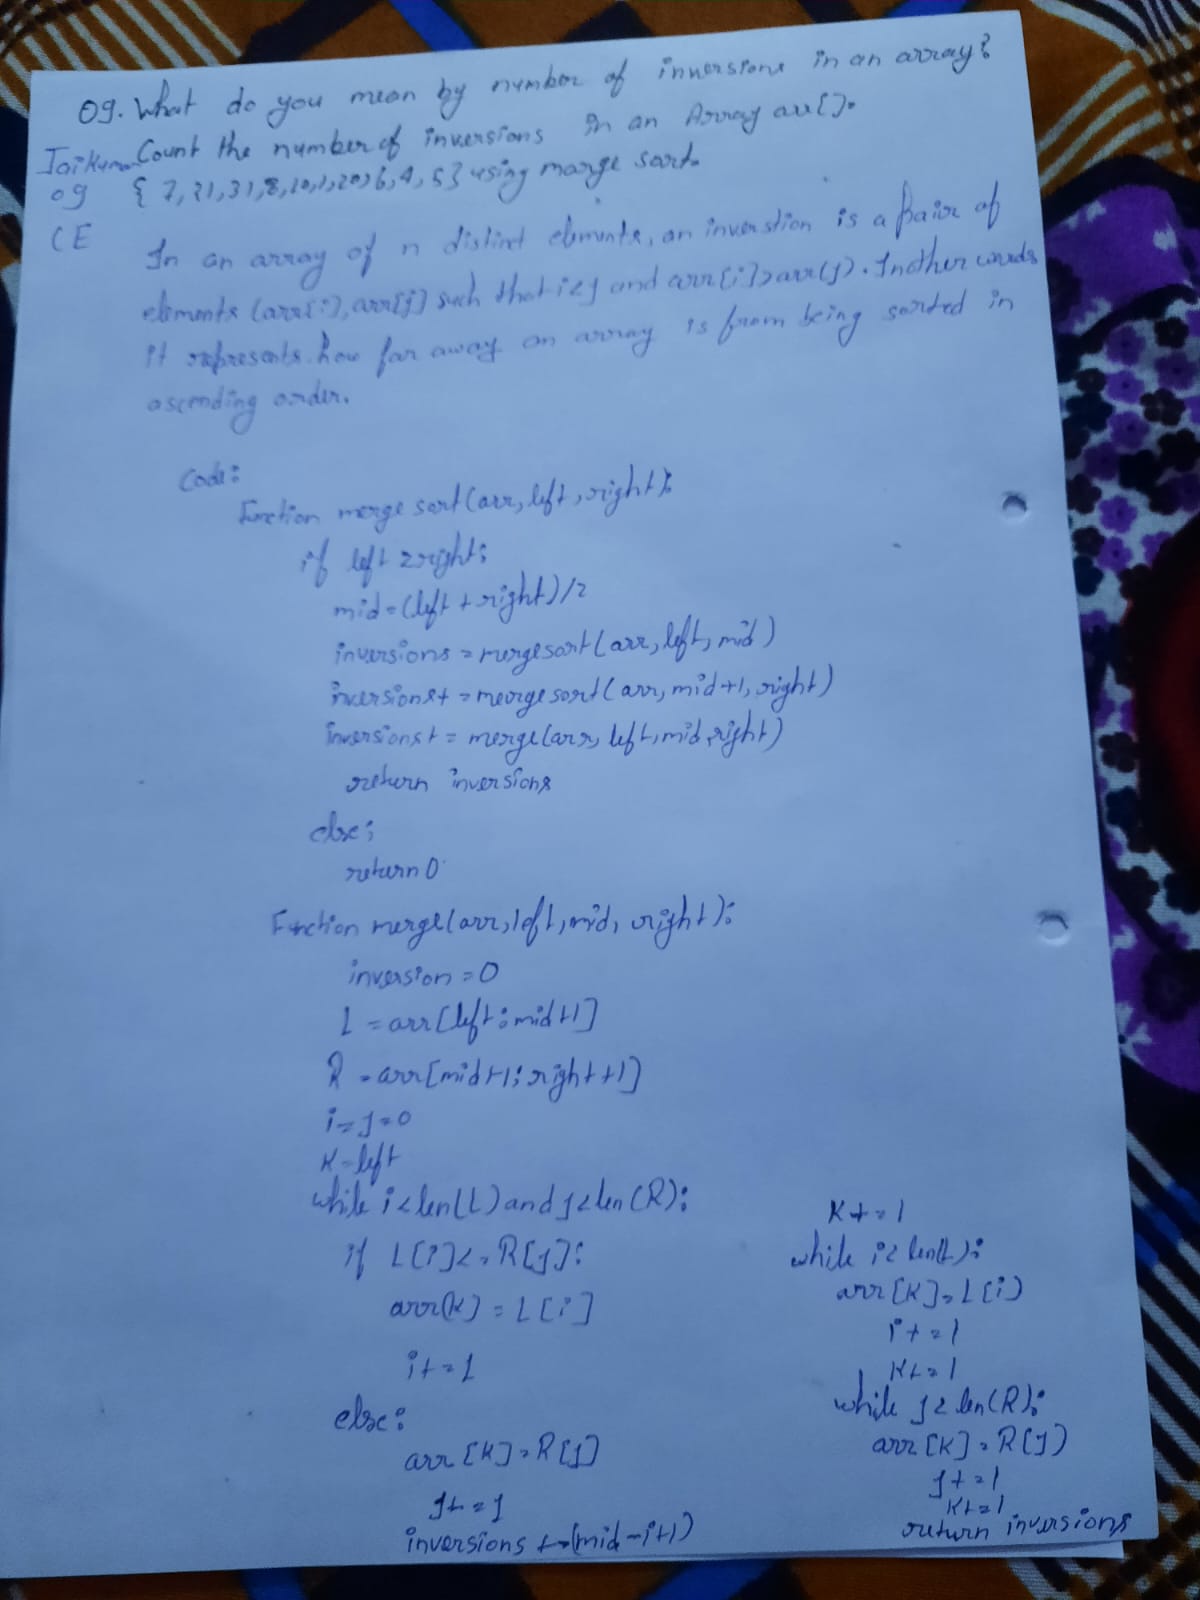 09. What do you mean by number of inversions in an array?
Jaikumar Count the number of inversions in an Array arr[].
09 { 7, 21, 31, 8, 10, 1, 20, 6, 4, 5 } using marge sort.
CE
In an array of n distinct elements, an inverstion is a pair of
elements (arr[i], arr[j] such that i<j and arr[i]>arr[j). In other words
it represents how far away an array is from being sorted in
ascending order.
Code:
Function merge sort(arr, left, right):
if left < right:
mid = (left + right)/2
inversions = mergesort(arr, left, mid)
inversions+ = merge sort(arr, mid+1, right)
inversions+ = merge(arr, left, mid, right)
return inversions
else:
return 0
Function merge(arr, left, mid, right):
inversion = 0
L = arr[left : mid+1]
R = arr[mid+1 : right+1]
i = j = 0
K = left
while i < len(L) and j < len(R):
if L[i] <= R[j]:
arr[K] = L[i]
i+ = 1
else:
arr[K] = R[j]
j+ = 1
inversions += (mid-i+1)
K+ = 1
while i < len(L):
arr[K] = L[i)
i+ = 1
K+ = 1
while j < len(R):
arr[K] = R[j)
j+ = 1
K+ = 1
return inversions